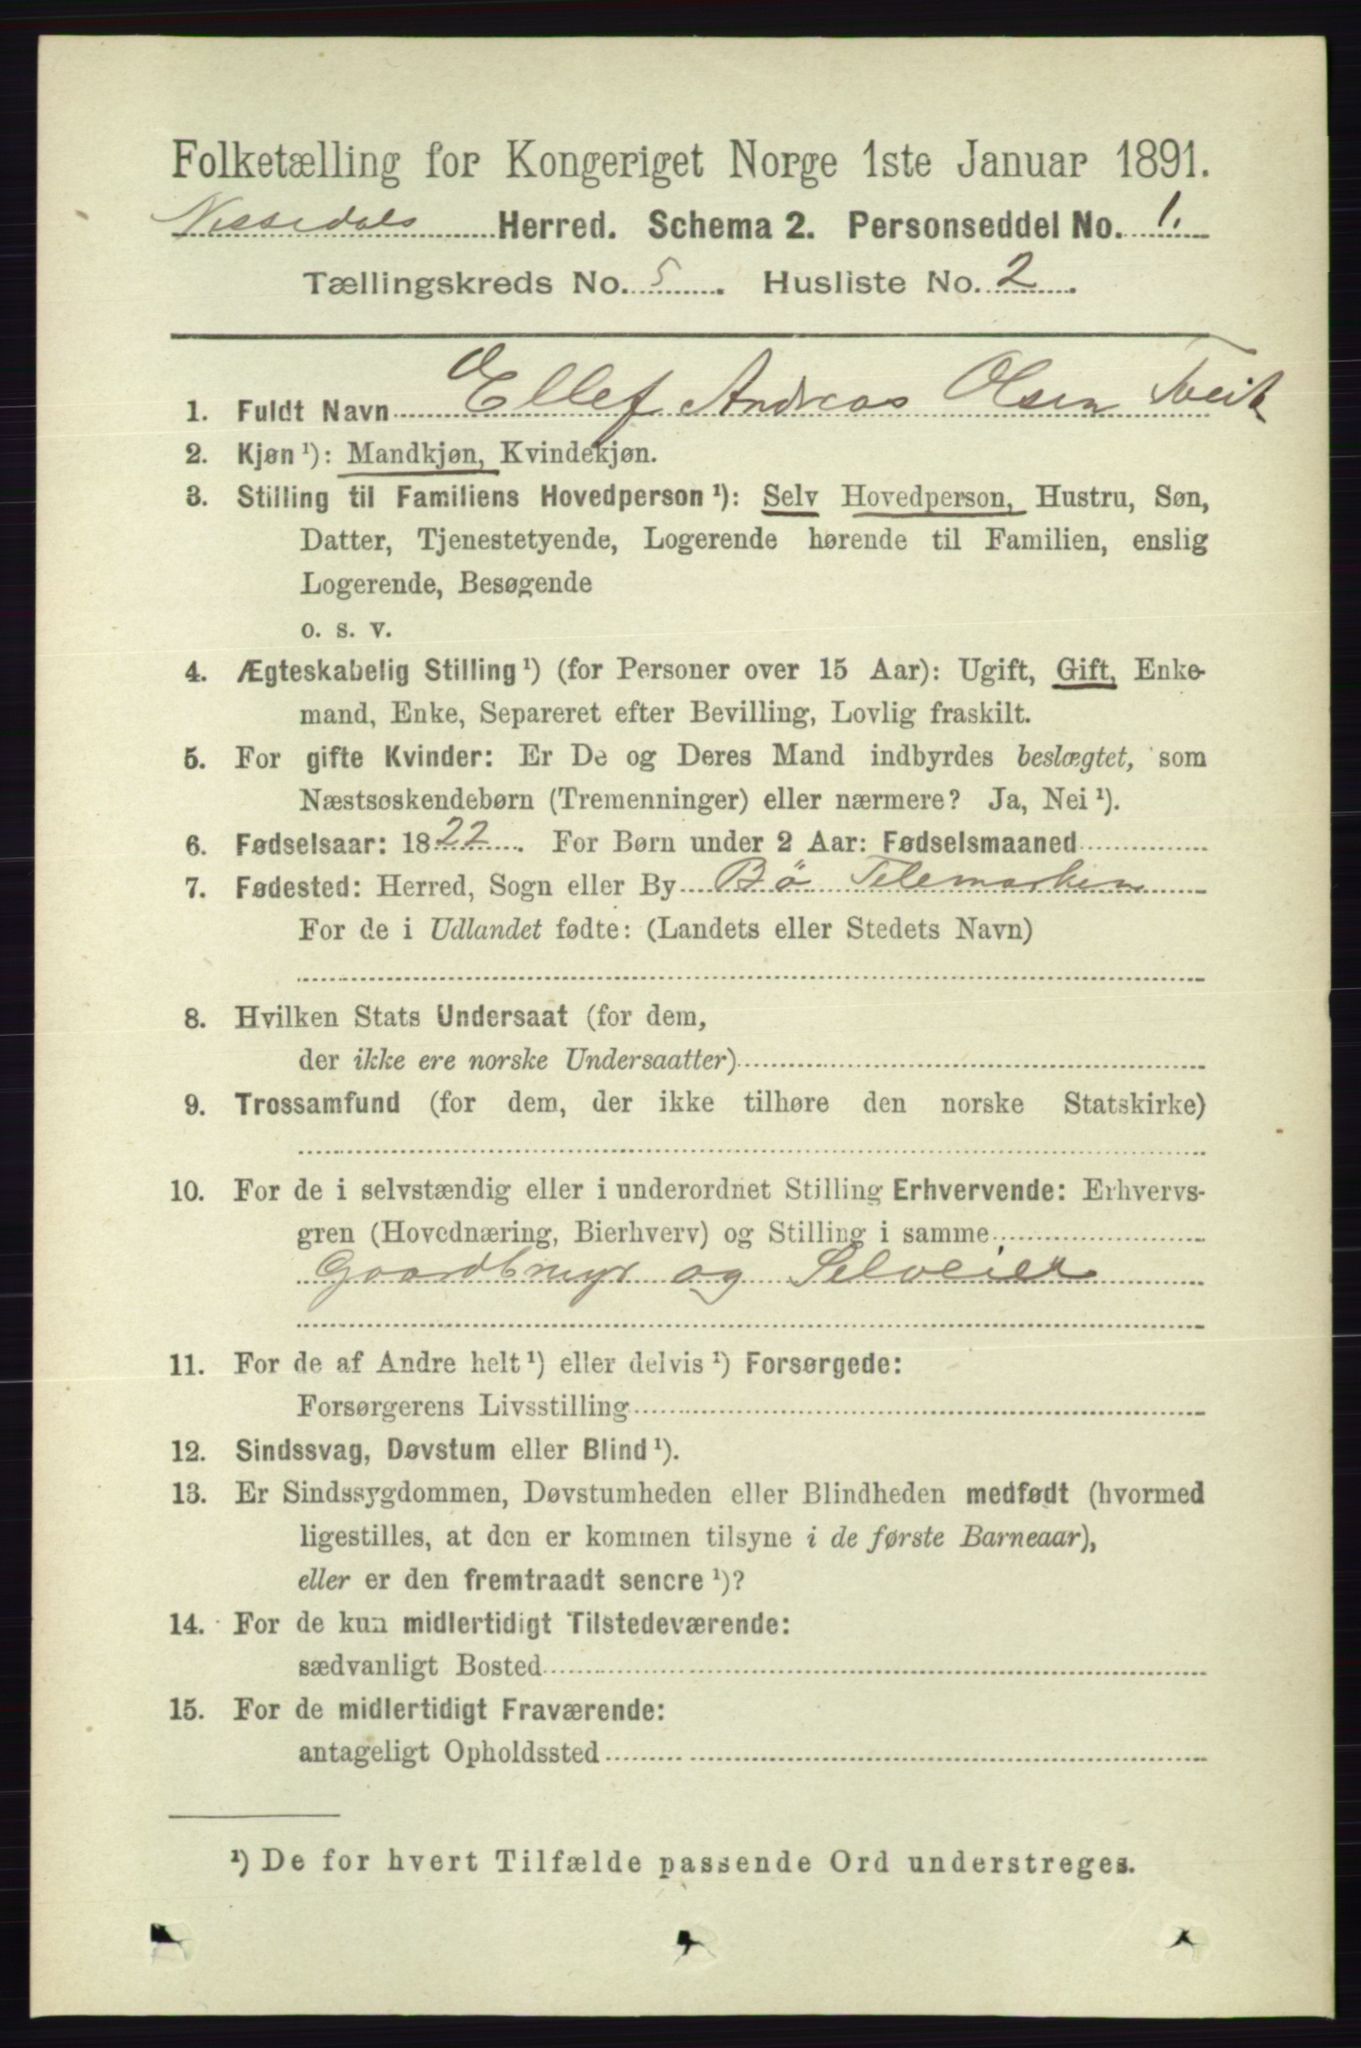 Folketælling for Kongeriget Norge 1ste Januar 1891.
Nissedals Herred. Schema 2. Personseddel No. 1.
Tællingskreds No. 5. Husliste No. 2.
1. Fuldt Navn Ellef Andreas Olsen Tveit
2. Kjøn ¹): Mandkjøn, Kvindekjøn.
3. Stilling til Familiens Hovedperson ¹): Selv Hovedperson, Hustru, Søn,
Datter, Tjenestetyende, Logerende hørende til Familien, enslig
Logerende, Besøgende
o. s. v.
4. Ægteskabelig Stilling ¹) (for Personer over 15 Aar): Ugift, Gift, Enke-
mand, Enke, Separeret efter Bevilling, Lovlig fraskilt.
5. For gifte Kvinder: Er De og Deres Mand indbyrdes beslægtet, som
Næstsøskendebørn (Tremenninger) eller nærmere? Ja, Nei ¹).
6. Fødselsaar: 1822. For Børn under 2 Aar: Fødselsmaaned
7. Fødested: Herred, Sogn eller By Bö Telemarken
For de i Udlandet fødte: (Landets eller Stedets Navn)
8. Hvilken Stats Undersaat (for dem,
der ikke ere norske Undersaatter)
9. Trossamfund (for dem, der ikke tilhøre den norske Statskirke)
10. For de i selvstændig eller i underordnet Stilling Erhvervende: Erhvervs-
gren (Hovednæring, Bierhverv) og Stilling i samme
Gaardbruger og Selveier
11. For de af Andre helt ¹) eller delvis ¹) Forsørgede:
Forsørgerens Livsstilling
12. Sindssvag, Døvstum eller Blind ¹).
13. Er Sindssygdommen, Døvstumheden eller Blindheden medfødt (hvormed
ligestilles, at den er kommen tilsyne i de første Barneaar),
eller er den fremtraadt senere ¹)?
14. For de kun midlertidigt Tilstedeværende:
sædvanligt Bosted
15. For de midlertidigt Fraværende:
antageligt Opholdssted
¹) De for hvert Tilfælde passende Ord understreges.